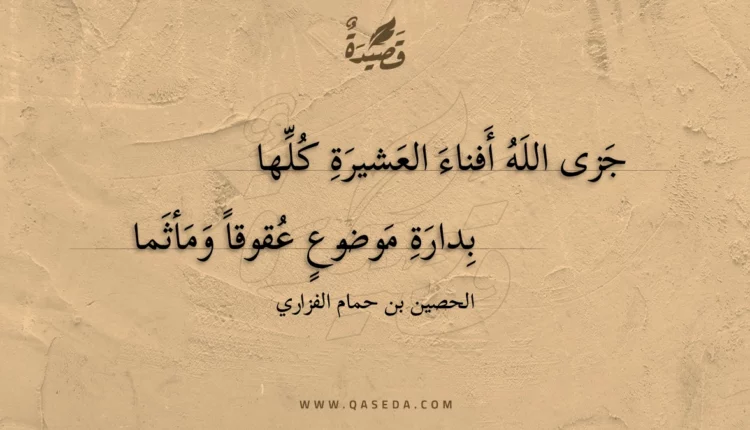 قَصِيدَةٌ
جَزى اللَهُ أَفناءَ العَشيرَةِ كُلِّها
بِدارَةِ مَوضوعٍ عُقوقاً وَمَأثَما
الحصين بن حمام الفزاري
WWW.QASEDA.COM